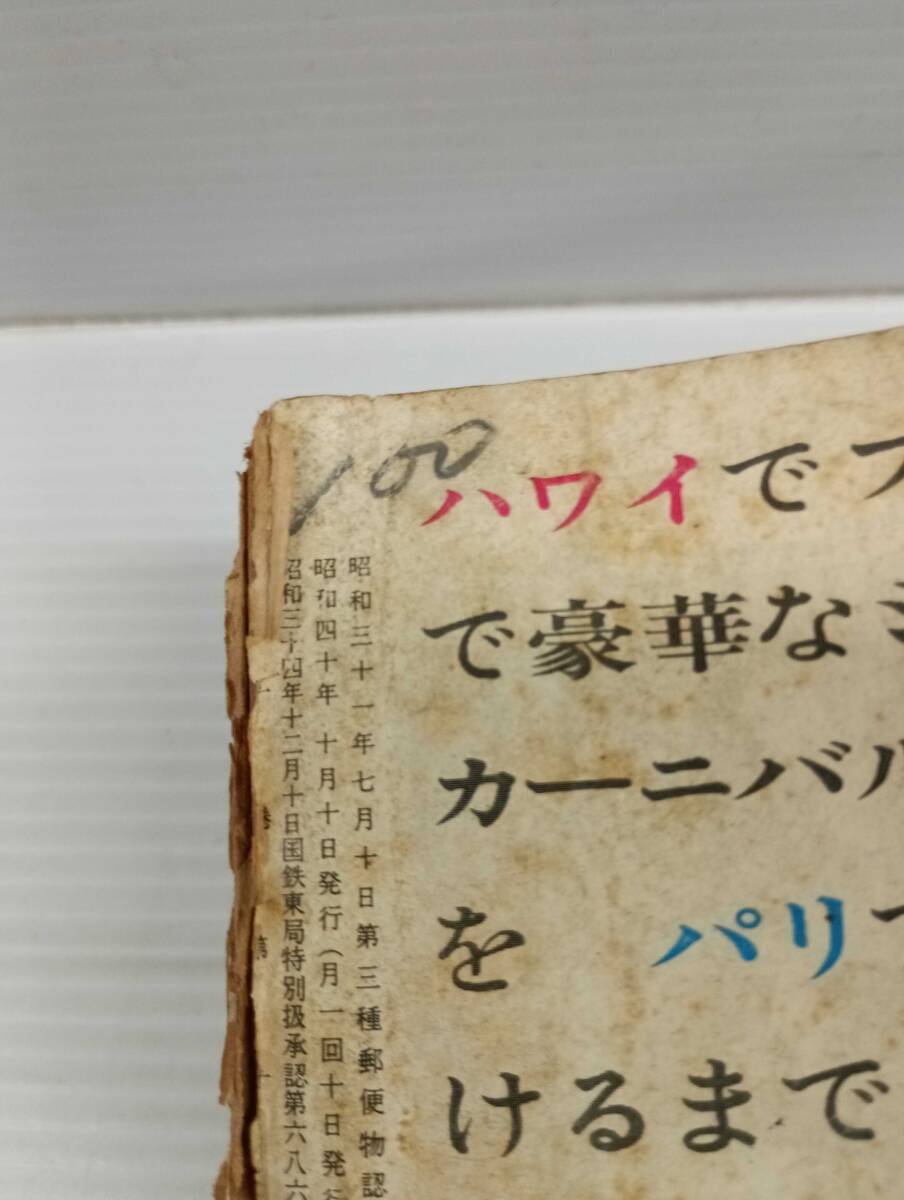 100
ハワイで
で豪華な
カーニバル
を パリ
けるまで
昭和三十一年七月十日第三種郵便物認
昭和四十年 十月十日発行(月一回十日発行
昭和三十四年十二月十日国鉄東局特別扱承認第六八六
第 十